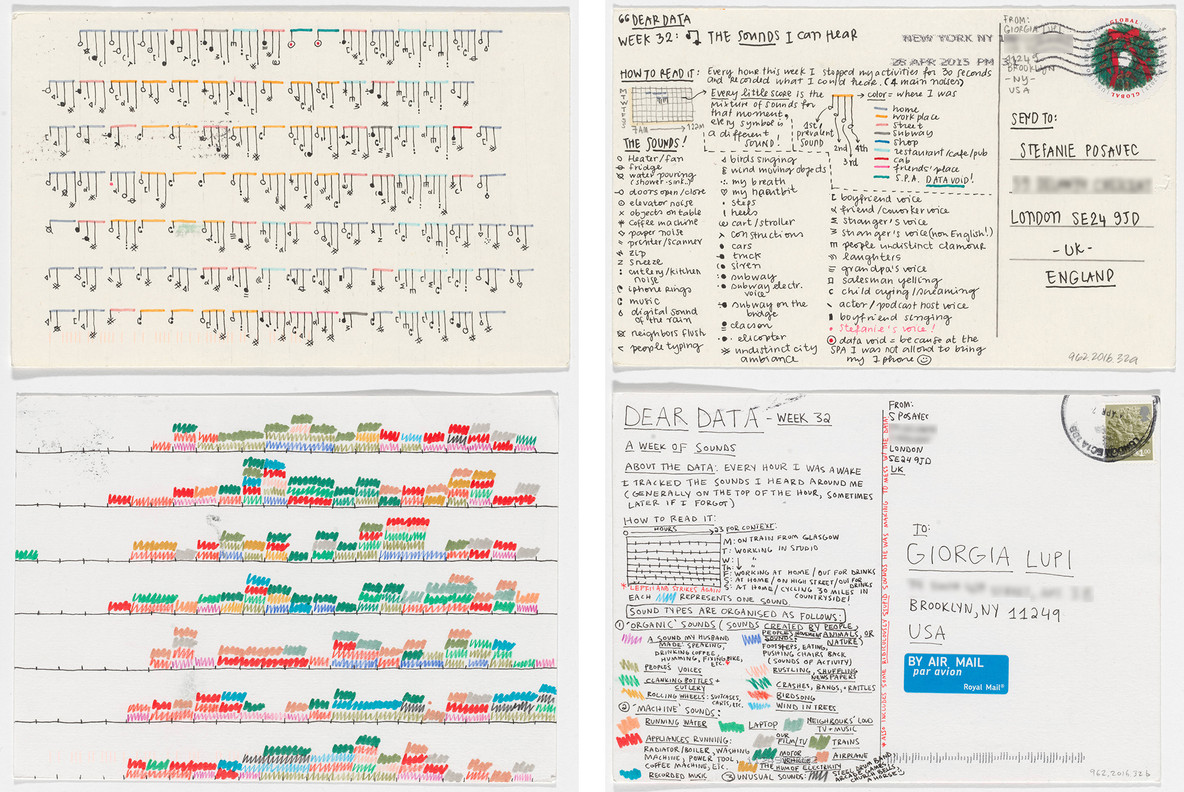 " DEAR DATA
WEEK 32: THE SOUNDS I CAN HEAR
HOW TO READ IT: Every hour this week I stopped my activities for 30 seconds
and recorded what I could hear. (4 main noises)
MTWTFSS
7AM 12AM
Every little score is the
mixture of sounds for
that moment,
every symbol is
a different
SOUND!
1st
prevalent
SOUND
2nd
3rd
4th
color = where I was
home
work place
street
subway
shop
restaurant/cafe/pub
cab
friends' place
S.P.A. DATA VOID!
THE SOUNDS!
Heater/fan
fridge
water pouring
(shower-sink)
doors open/close
elevator noise
objects on table
coffee machine
paper noise
printer/scanner
zip
sneeze
cutlery/kitchen
noise
iphone rings
music
digital sound
of the rain
neighbors flush
people typing
birds singing
wind moving objects
my breath
my habitbit
steps
heels
cart/stroller
constructions
cars
truck
siren
subway
subway electr.
voice
subway on the
bridge
claxson
elicopter
undistinct city
ambiance
boyfriend voice
friend/coworker voice
stranger's voice
stranger's voice (non English!)
people undistinct clamour
laughters
grandpa's voice
salesman yelling
child crying/screaming
actor/podcast host voice
boyfriend singing
Stefanie's voice!
data void = because at the
SPA I was not allowed to bring
my iphone
FROM:
GIORGIA LUPI
11249
BROOKLYN
-NY-
USA
NEW YORK NY
28 APR 2015 PM
GLOBAL
GLOBAL
SEND TO:
STEFANIE POSAVEC
LONDON SE24 9JD
-UK-
ENGLAND
962.2016.32a
DEAR DATA - WEEK 32
A WEEK OF SOUNDS
ABOUT THE DATA: EVERY HOUR I WAS AWAKE
I TRACKED THE SOUNDS I HEARD AROUND ME
(GENERALLY ON THE TOP OF THE HOUR, SOMETIMES
LATER IF I FORGOT)
HOW TO READ IT:
0 HOURS 23 FOR CONTEXT:
M: ON TRAIN FROM GLASGOW
T: WORKING IN STUDIO
W: "
TH: "
F: WORKING AT HOME/OUT FOR DRINKS
S: AT HOME/ON HIGH STREET/OUT FOR DRINKS
S: AT HOME/CYCLING 30 MILES IN
COUNTRYSIDE!
EACH REPRESENTS ONE SOUND.
SOUND TYPES ARE ORGANISED AS FOLLOWS:
① 'ORGANIC' SOUNDS (SOUNDS CREATED BY PEOPLE, ANIMALS, OR
NATURE)
A SOUND MY HUSBAND
MADE: SPEAKING,
DRINKING COFFEE,
HUMMING, FIXING BIKE,
ETC.*
PEOPLE'S VOICES
CLANKING BOTTLES +
CUTLERY
ROLLING WHEELS: SUITCASES,
CARTS, ETC.
PEOPLE'S MOVEMENT
SOUNDS:
FOOTSTEPS, EATING,
PUSHING CHAIRS BACK
(SOUNDS OF ACTIVITY)
RUSTLING, SHUFFLING
NEWSPAPERS
CRASHES, BANGS, + RATTLES
BIRDSONG
WIND IN TREES
② 'MACHINE' SOUNDS:
RUNNING WATER
APPLIANCES RUNNING:
RADIATOR/BOILER, WASHING
MACHINE, POWER TOOL,
COFFEE MACHINE, ETC.
RECORDED MUSIC
LAPTOP
OUR
FILM/TV
MOTOR
VEHICLE
THE HUM OF ELECTRICITY
NEIGHBOURS' LOUD
TV + MUSIC
TRAINS
AIRPLANE
③ UNUSUAL SOUNDS:
STEEL DRUM BAND,
CHURCH BELLS,
A HORSE
FROM:
S POSAVEC
LONDON
SE24 9JD
UK
TO:
GIORGIA LUPI
BROOKLYN, NY 11249
USA
BY AIR MAIL
par avion
Royal Mail®
962.2016.32b